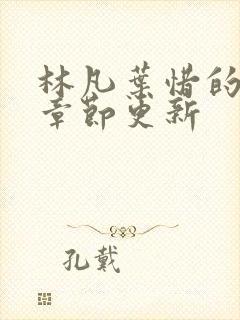 林凡葉惜的
章節更新
孔戴